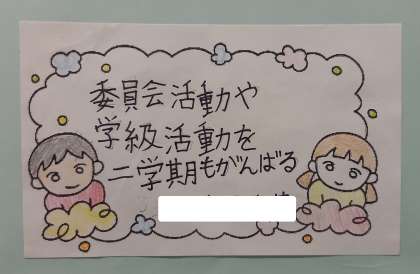 委員会活動や
学級活動を
二学期もがんばる